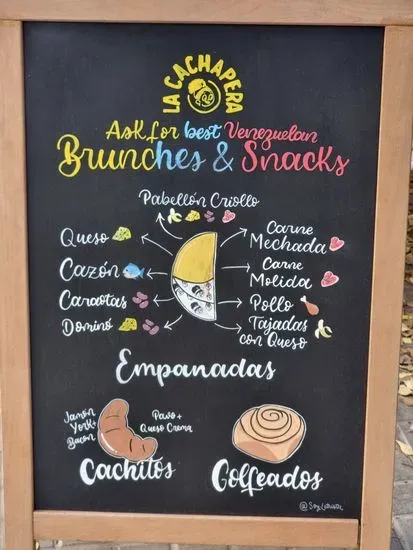 LA CACHAPERA
Ask for best Venezuelan
Brunches & Snacks
Pabellón Criollo
Queso
Cazón
Caraotas
Dominó
Carne
Mechada
Carne
Molida
Pollo
Tajadas
con Queso
Empanadas
Jamón
York +
Bacon
Pavo +
Queso Crema
Cachitos
Golfeados